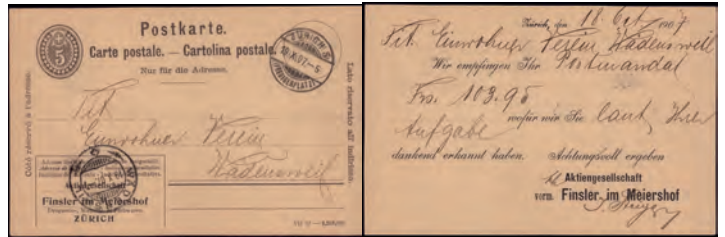 Postkarte.
Carte postale. — Cartolina postale.
Nur für die Adresse.
5
ZÜRICH
Côté réservé à l'adresse.
Lato riservato all' indirizzo.
Tit.
Einwohner Verein
Wädensweil
Aktiengesellschaft
Finsler im Meiershof
ZÜRICH
Zürich, den 18. Oct. 1907
Tit. Einwohner Verein Wädensweil
Wir empfingen Ihr Postmandat
Frs. 103.95
wofür wir Sie laut Ihrer
Aufgabe
dankend erkannt haben. Achtungsvoll ergeben
Aktiengesellschaft
vorm. Finsler im Meiershof